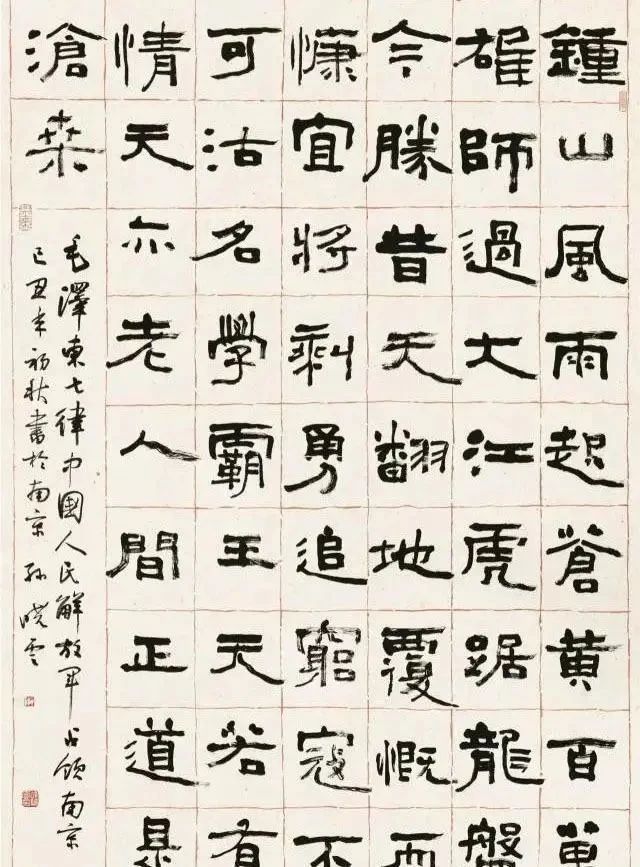 鍾山風雨起蒼黄百萬
雄師過大江虎踞龍盤
今勝昔天翻地覆慨而
慷宜將剩勇追窮寇不
可沽名學霸王天若有
情天亦老人間正道是
滄桑
毛澤東七律中國人民解放軍占領南京
己丑年初秋書於南京 孫曉雲